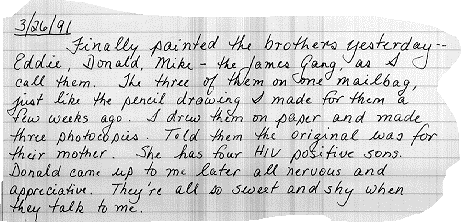 3/26/91
Finally painted the brothers yesterday--
Eddie, Donald, Mike - the James Gang, as I
call them. The three of them on one mailbag,
just like the pencil drawing I made for them a
few weeks ago. I drew them on paper and made
three photocopies. Told them the original was for
their mother. She has four HIV positive sons.
Donald came up to me later all nervous and
appreciative. They're all so sweet and shy when
they talk to me.